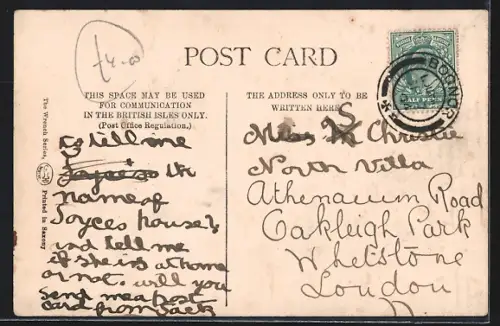 £4-00
POST CARD
THIS SPACE MAY BE USED
FOR COMMUNICATION
IN THE BRITISH ISLES ONLY.
(Post Office Regulation.)
THE ADDRESS ONLY TO BE
WRITTEN HERE
The Wrench Series,
Printed in Saxony
BOGNOR
HALF PENNY
to tell me
Joyces the
name of
Joyces house?
and tell me
if she is at home
or not. will you
send me a post
card from
S
Miss M Christie
North Villa
Athenaeum Road
Oakleigh Park
Whetstone
London